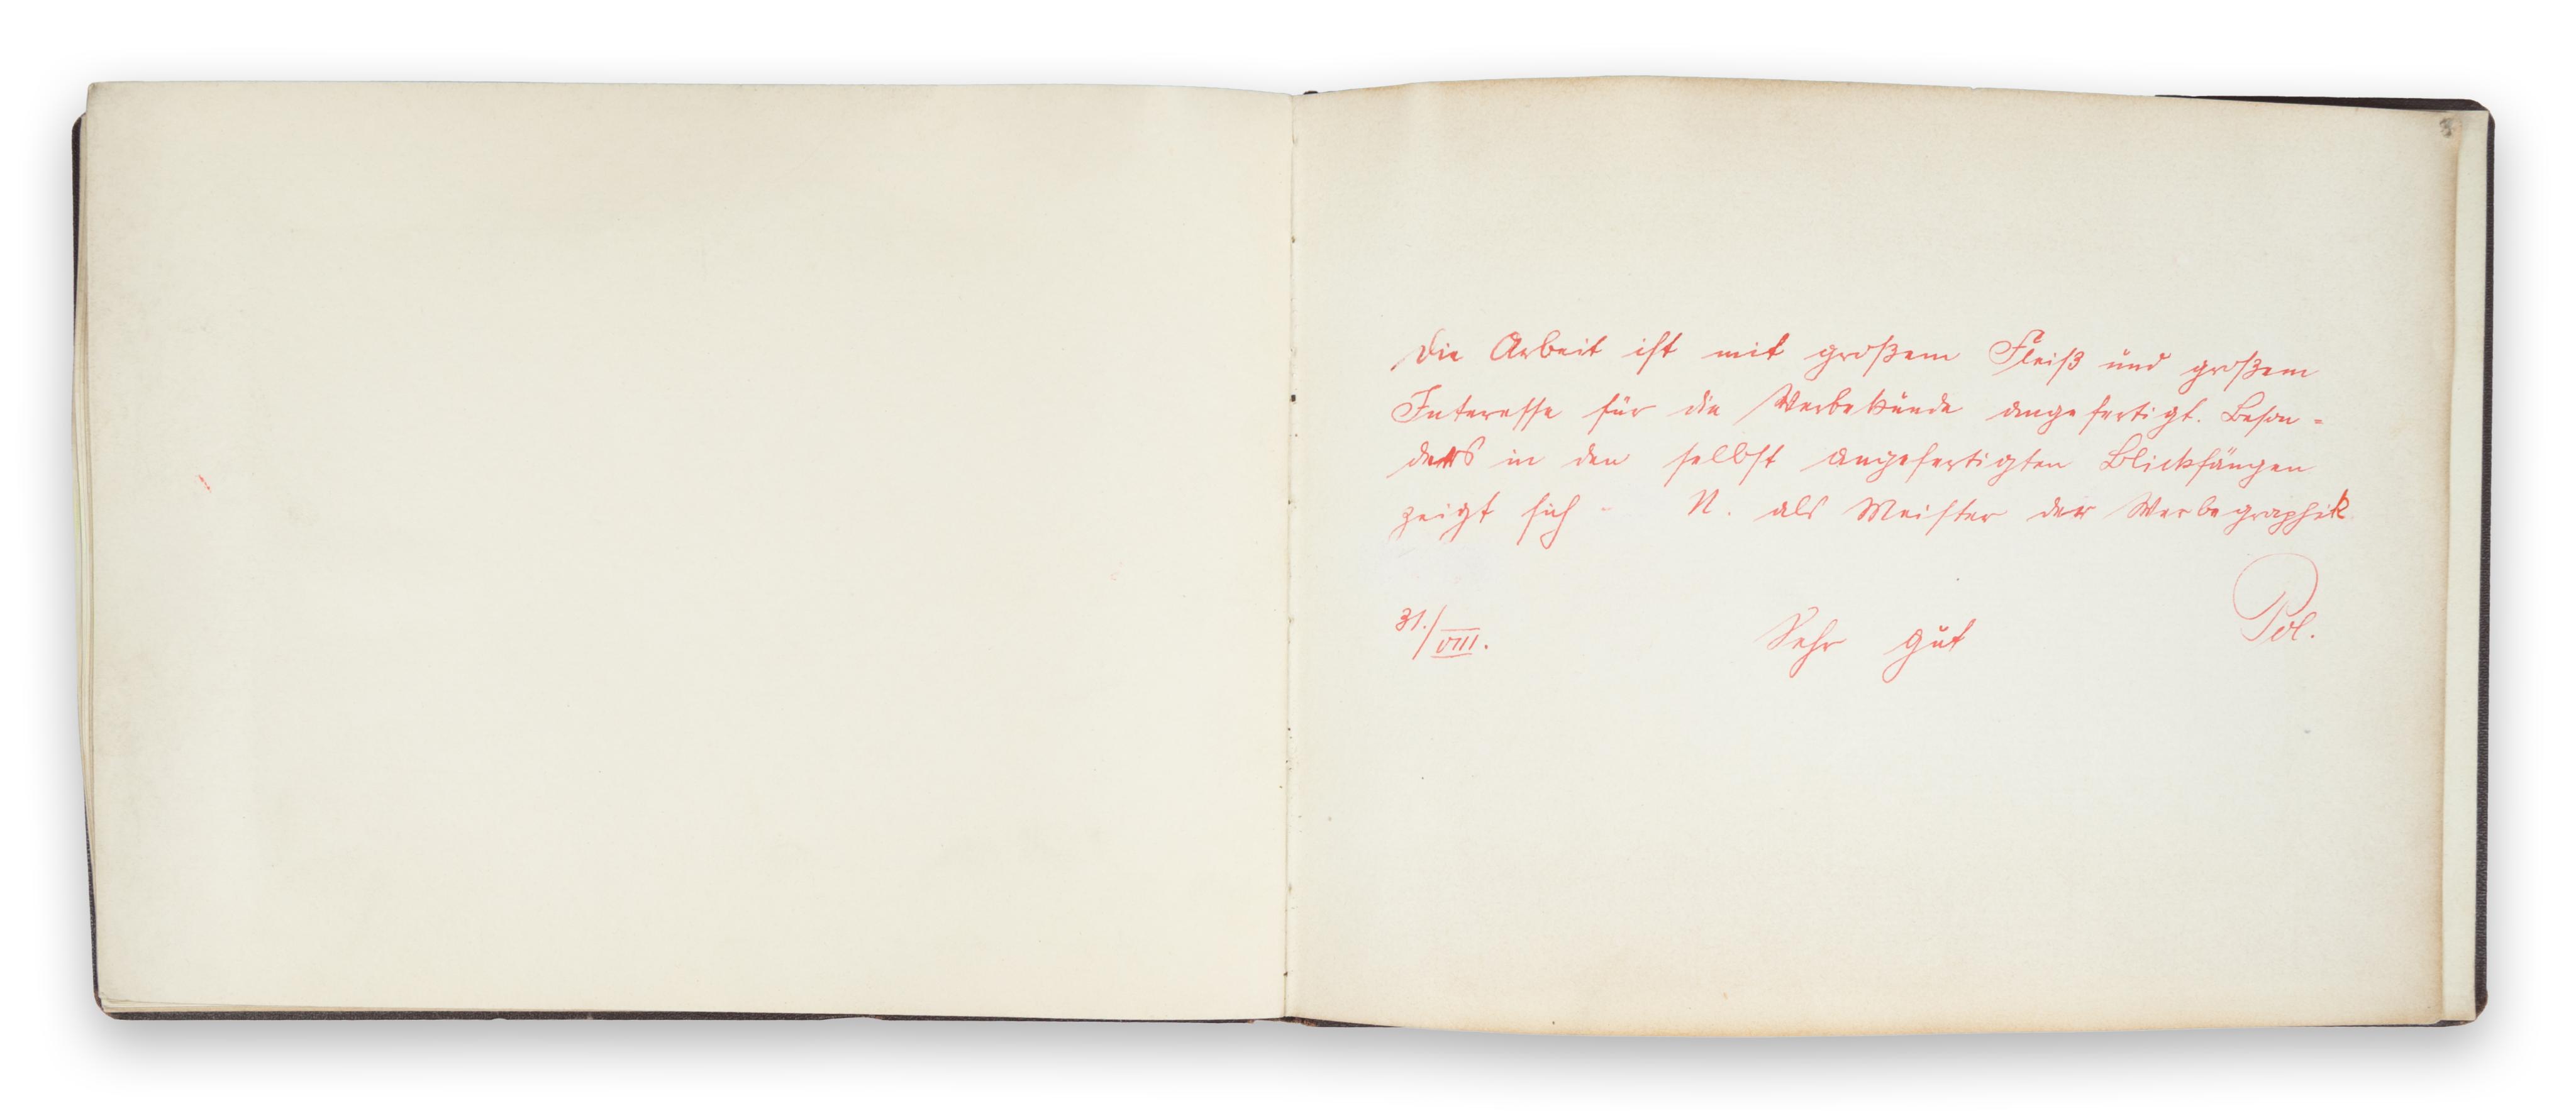 Die Arbeit ist mit großem Fleiß und großem
Interesse für die Werbekunde angefertigt. Beson=
ders in den selbst angefertigten Blickfängen
zeigt sich N. als Meister der Werbegraphik
31./VIII. Sehr gut Pol.